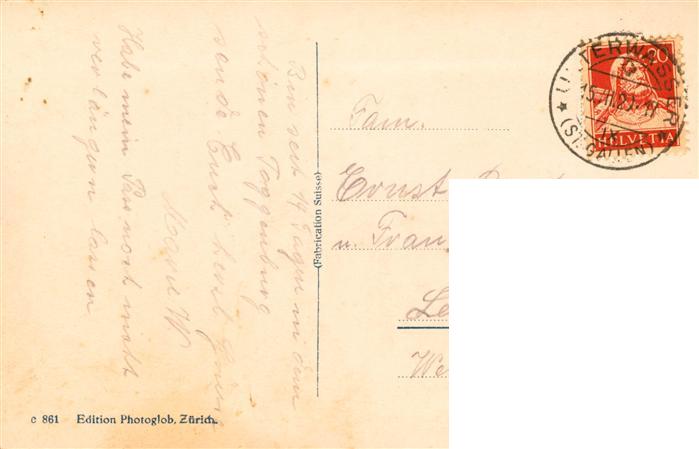 Bin seit 14 Tagen in dem
schönen Toggenburg
sende Euch herzl. Grüsse
Marie W
Habe mein Pass noch nicht
verlängern lassen
(Fabrication Suisse)
Fam.
Ernst
u. Frau
Le
We
20
HELVETIA
UNTERWASSER
(ST. GALLEN)
c 861 Edition Photoglob, Zürich.